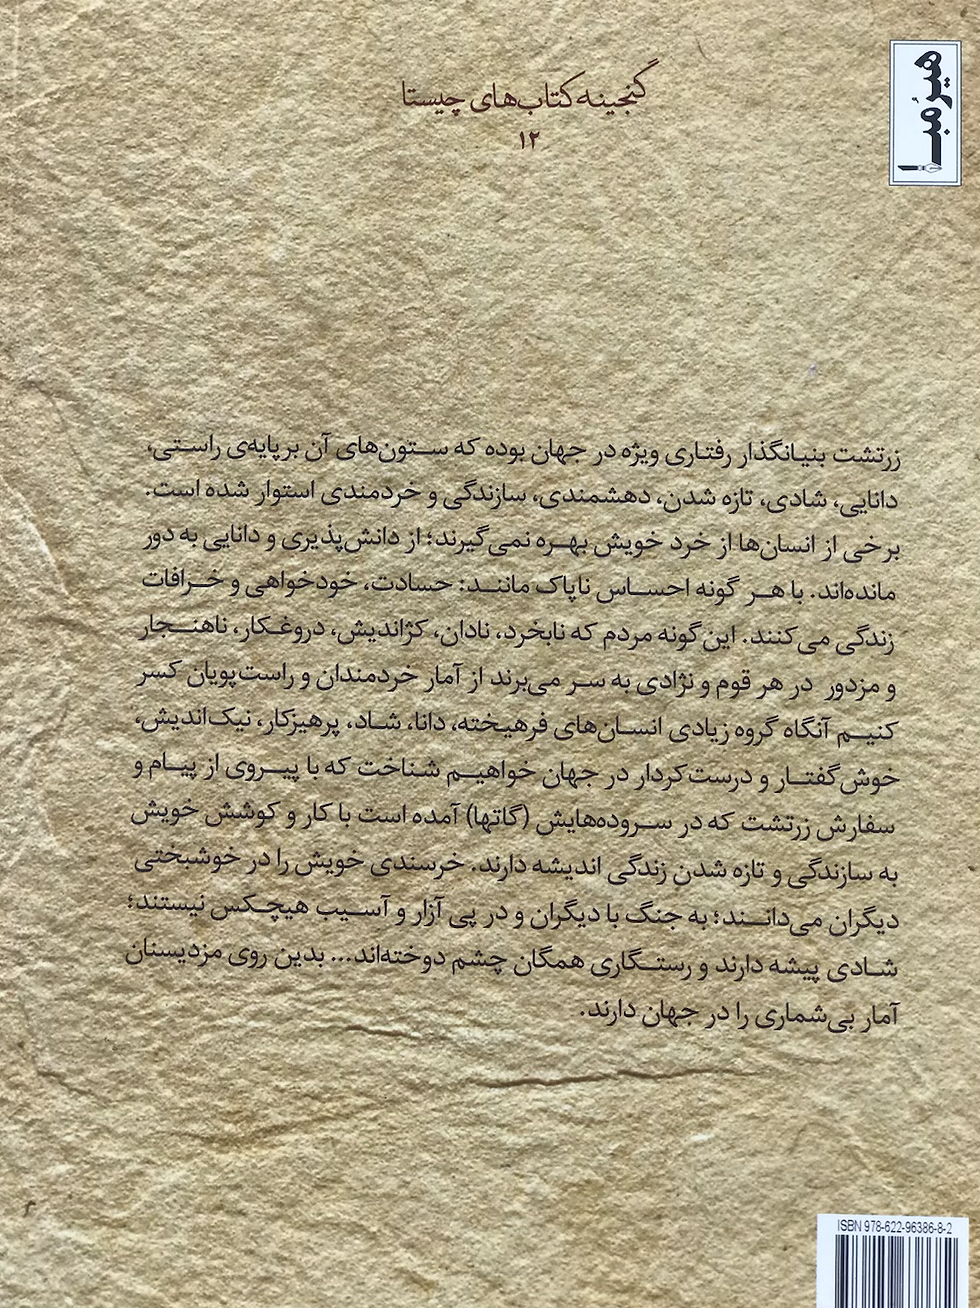 گنجینه کتاب‌های چیستا
۱۲
هیرمبا
زرتشت بنیانگذار رفتاری ویژه در جهان بوده که ستون‌های آن بر پایه‌ی راستی،
دانایی، شادی، تازه شدن، دهشمندی، سازندگی و خردمندی استوار شده است.
برخی از انسان‌ها از خرد خویش بهره نمی‌گیرند؛ از دانش‌پذیری و دانایی به دور
مانده‌اند. با هر گونه احساس ناپاک مانند: حسادت، خودخواهی و خرافات
زندگی می‌کنند. این‌گونه مردم که نابخرد، نادان، کژاندیش، دروغکار، ناهنجار
و مزدور در هر قوم و نژادی به سر می‌برند از آمار خردمندان و راست‌پویان کسر
کنیم آنگاه گروه زیادی انسان‌های فرهیخته، دانا، شاد، پرهیزکار، نیک‌اندیش،
خوش‌گفتار و درست‌کردار در جهان خواهیم شناخت که با پیروی از پیام و
سفارش زرتشت که در سروده‌هایش (گاتها) آمده است با کار و کوشش خویش
به سازندگی و تازه شدن زندگی اندیشه دارند. خرسندی خویش را در خوشبختی
دیگران می‌دانند؛ به جنگ با دیگران و در پی آزار و آسیب هیچکس نیستند؛
شادی پیشه دارند و رستگاری همگان چشم دوخته‌اند... بدین روی مزدیسنان
آمار بی‌شماری را در جهان دارند.
ISBN 978-622-96386-8-2